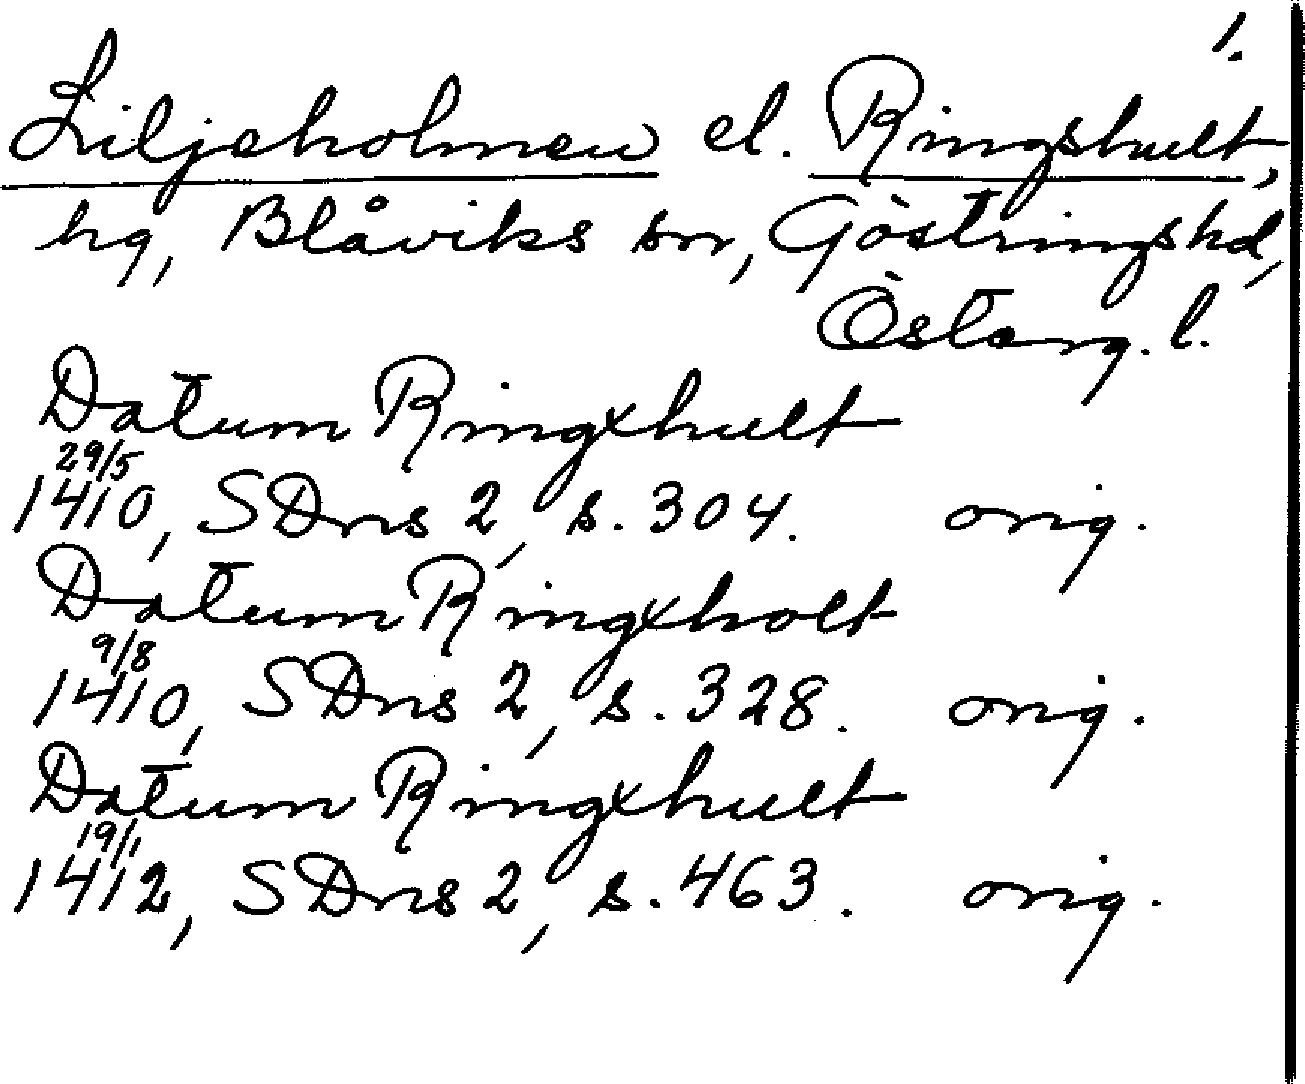 1.
Liljeholmen el. Ringshult,
hg, Blåviks sn, Göstringshd,
Österg. l.
Datum Ringxhult
29/5
1410, SDns 2, s. 304. orig.
Datum Ringxholt
9/8
1410, SDns 2, s. 328. orig.
Datum Ringxhult
19/1
1412, SDns 2, s. 463. orig.